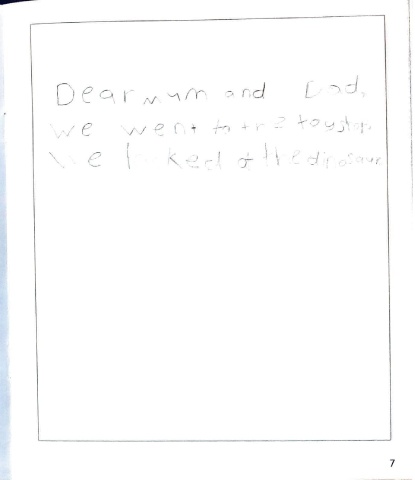 Dear mum and Dad,
we went to the toyshop.
We looked at the dinosaur
7